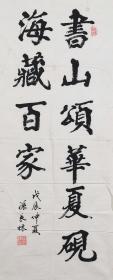 書山頌華夏硯
海藏百家
戊辰仲夏